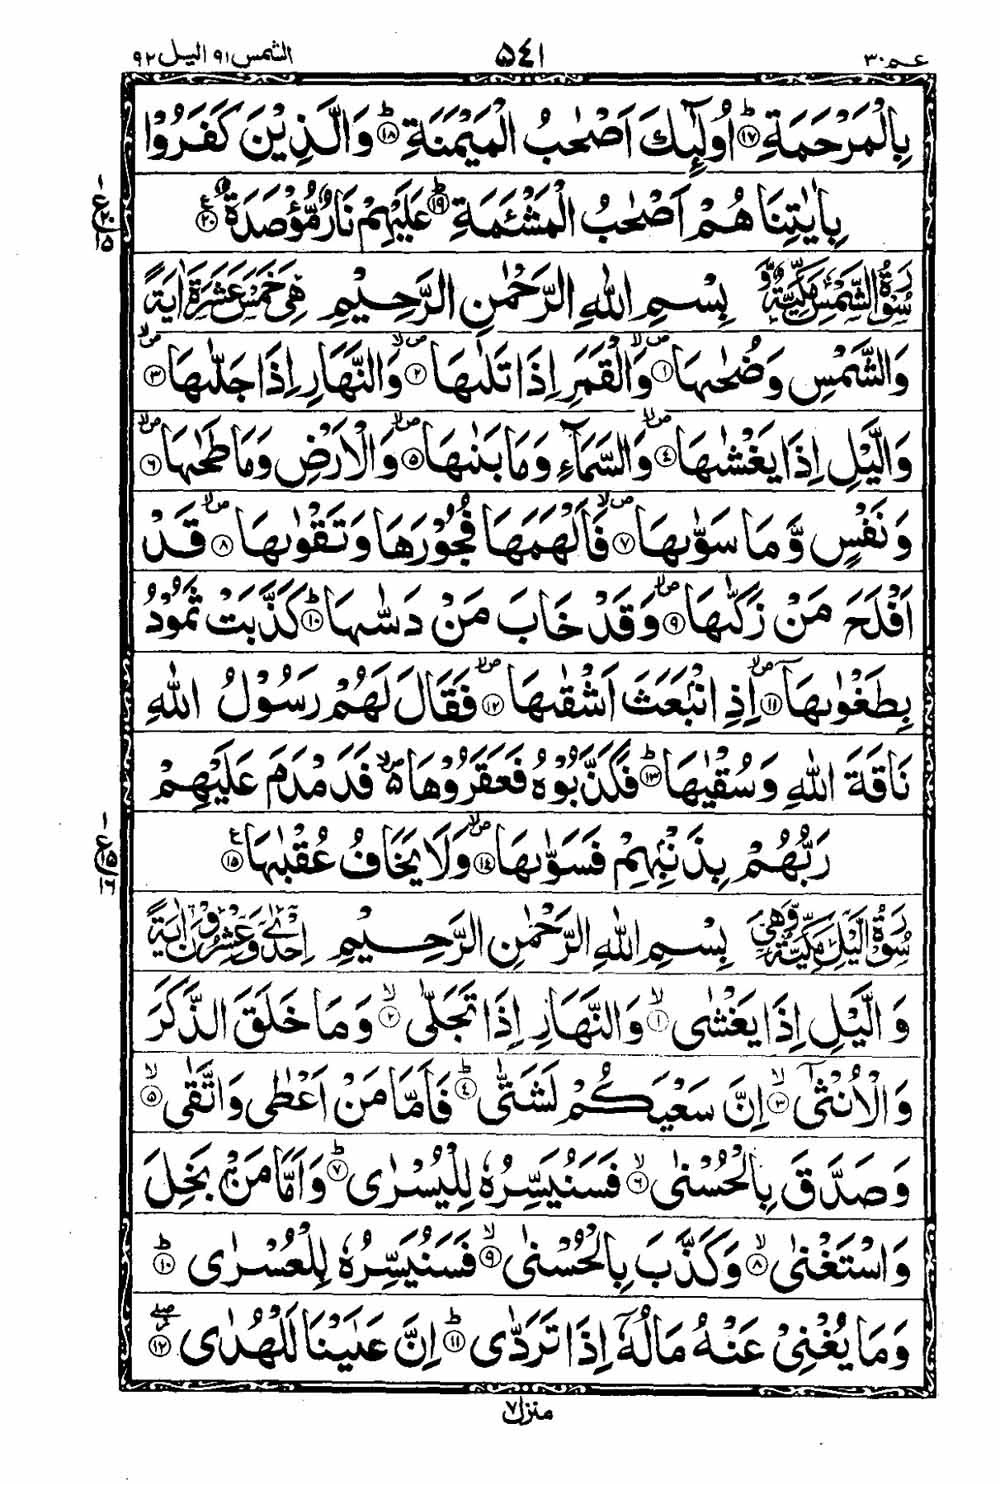 الشمس ٩١ اليل ٩٢ ٥٤١ عم ٣٠
بِالْمَرْحَمَةِ ؕ﴿۱۷﴾ اُولٰٓئِكَ اَصْحٰبُ الْمَيْمَنَةِ ؕ﴿۱۸﴾ وَالَّذِيْنَ كَفَرُوْا
بِاٰيٰتِنَا هُمْ اَصْحٰبُ الْمَشْـَٔمَةِ ؕ﴿۱۹﴾ عَلَيْهِمْ نَارٌ مُّؤْصَدَةٌ ﴿۲۰﴾ ع
سُوْرَةُ الشَّمْسِ مَكِّيَّةٌ وَّ بِسْمِ اللّٰهِ الرَّحْمٰنِ الرَّحِيْمِ هِيَ خَمْسَ عَشْرَةَ اٰيَةً
وَالشَّمْسِ وَضُحٰىهَا ۪ۙ﴿۱﴾ وَالْقَمَرِ اِذَا تَلٰىهَا ۪ۙ﴿۲﴾ وَالنَّهَارِ اِذَا جَلّٰىهَا ۪ۙ﴿۳﴾
وَالَّيْلِ اِذَا يَغْشٰىهَا ۪ۙ﴿۴﴾ وَالسَّمَآءِ وَمَا بَنٰىهَا ۪ۙ﴿۵﴾ وَالْاَرْضِ وَمَا طَحٰىهَا ۪ۙ﴿۶﴾
وَنَفْسٍ وَّمَا سَوّٰىهَا ۪ۙ﴿۷﴾ فَاَلْهَمَهَا فُجُوْرَهَا وَتَقْوٰىهَا ۪ۙ﴿۸﴾ قَدْ
اَفْلَحَ مَنْ زَكّٰىهَا ۪ۙ﴿۹﴾ وَقَدْ خَابَ مَنْ دَسّٰىهَا ؕ﴿۱۰﴾ كَذَّبَتْ ثَمُوْدُ
بِطَغْوٰىهَاۤ ۪ۙ﴿۱۱﴾ اِذِ انْۢبَعَثَ اَشْقٰىهَا ۪ۙ﴿۱۲﴾ فَقَالَ لَهُمْ رَسُوْلُ اللّٰهِ
نَاقَةَ اللّٰهِ وَسُقْيٰهَا ؕ﴿۱۳﴾ فَكَذَّبُوْهُ فَعَقَرُوْهَا ۪ۙ۵ فَدَمْدَمَ عَلَيْهِمْ
رَبُّهُمْ بِذَنْۢبِهِمْ فَسَوّٰىهَا ۪ۙ﴿۱۴﴾ وَلَا يَخَافُ عُقْبٰهَا ﴿۱۵﴾ ع
سُوْرَةُ الَّيْلِ مَكِّيَّةٌ وَّهِيَ بِسْمِ اللّٰهِ الرَّحْمٰنِ الرَّحِيْمِ اِحْدٰى وَّعِشْرُوْنَ اٰيَةً
وَالَّيْلِ اِذَا يَغْشٰى ۙ﴿۱﴾ وَالنَّهَارِ اِذَا تَجَلّٰى ۙ﴿۲﴾ وَمَا خَلَقَ الذَّكَرَ
وَالْاُنْثٰٓى ۙ﴿۳﴾ اِنَّ سَعْيَكُمْ لَشَتّٰى ؕ﴿۴﴾ فَاَمَّا مَنْ اَعْطٰى وَاتَّقٰى ۙ﴿۵﴾
وَصَدَّقَ بِالْحُسْنٰى ۙ﴿۶﴾ فَسَنُيَسِّرُهٗ لِلْيُسْرٰى ؕ﴿۷﴾ وَاَمَّا مَنْۢ بَخِلَ
وَاسْتَغْنٰى ۙ﴿۸﴾ وَكَذَّبَ بِالْحُسْنٰى ۙ﴿۹﴾ فَسَنُيَسِّرُهٗ لِلْعُسْرٰى ؕ﴿۱۰﴾
وَمَا يُغْنِيْ عَنْهُ مَالُهٗۤ اِذَا تَرَدّٰى ؕ﴿۱۱﴾ اِنَّ عَلَيْنَا لَلْهُدٰى ۖ﴿۱۲﴾
منزل ٧